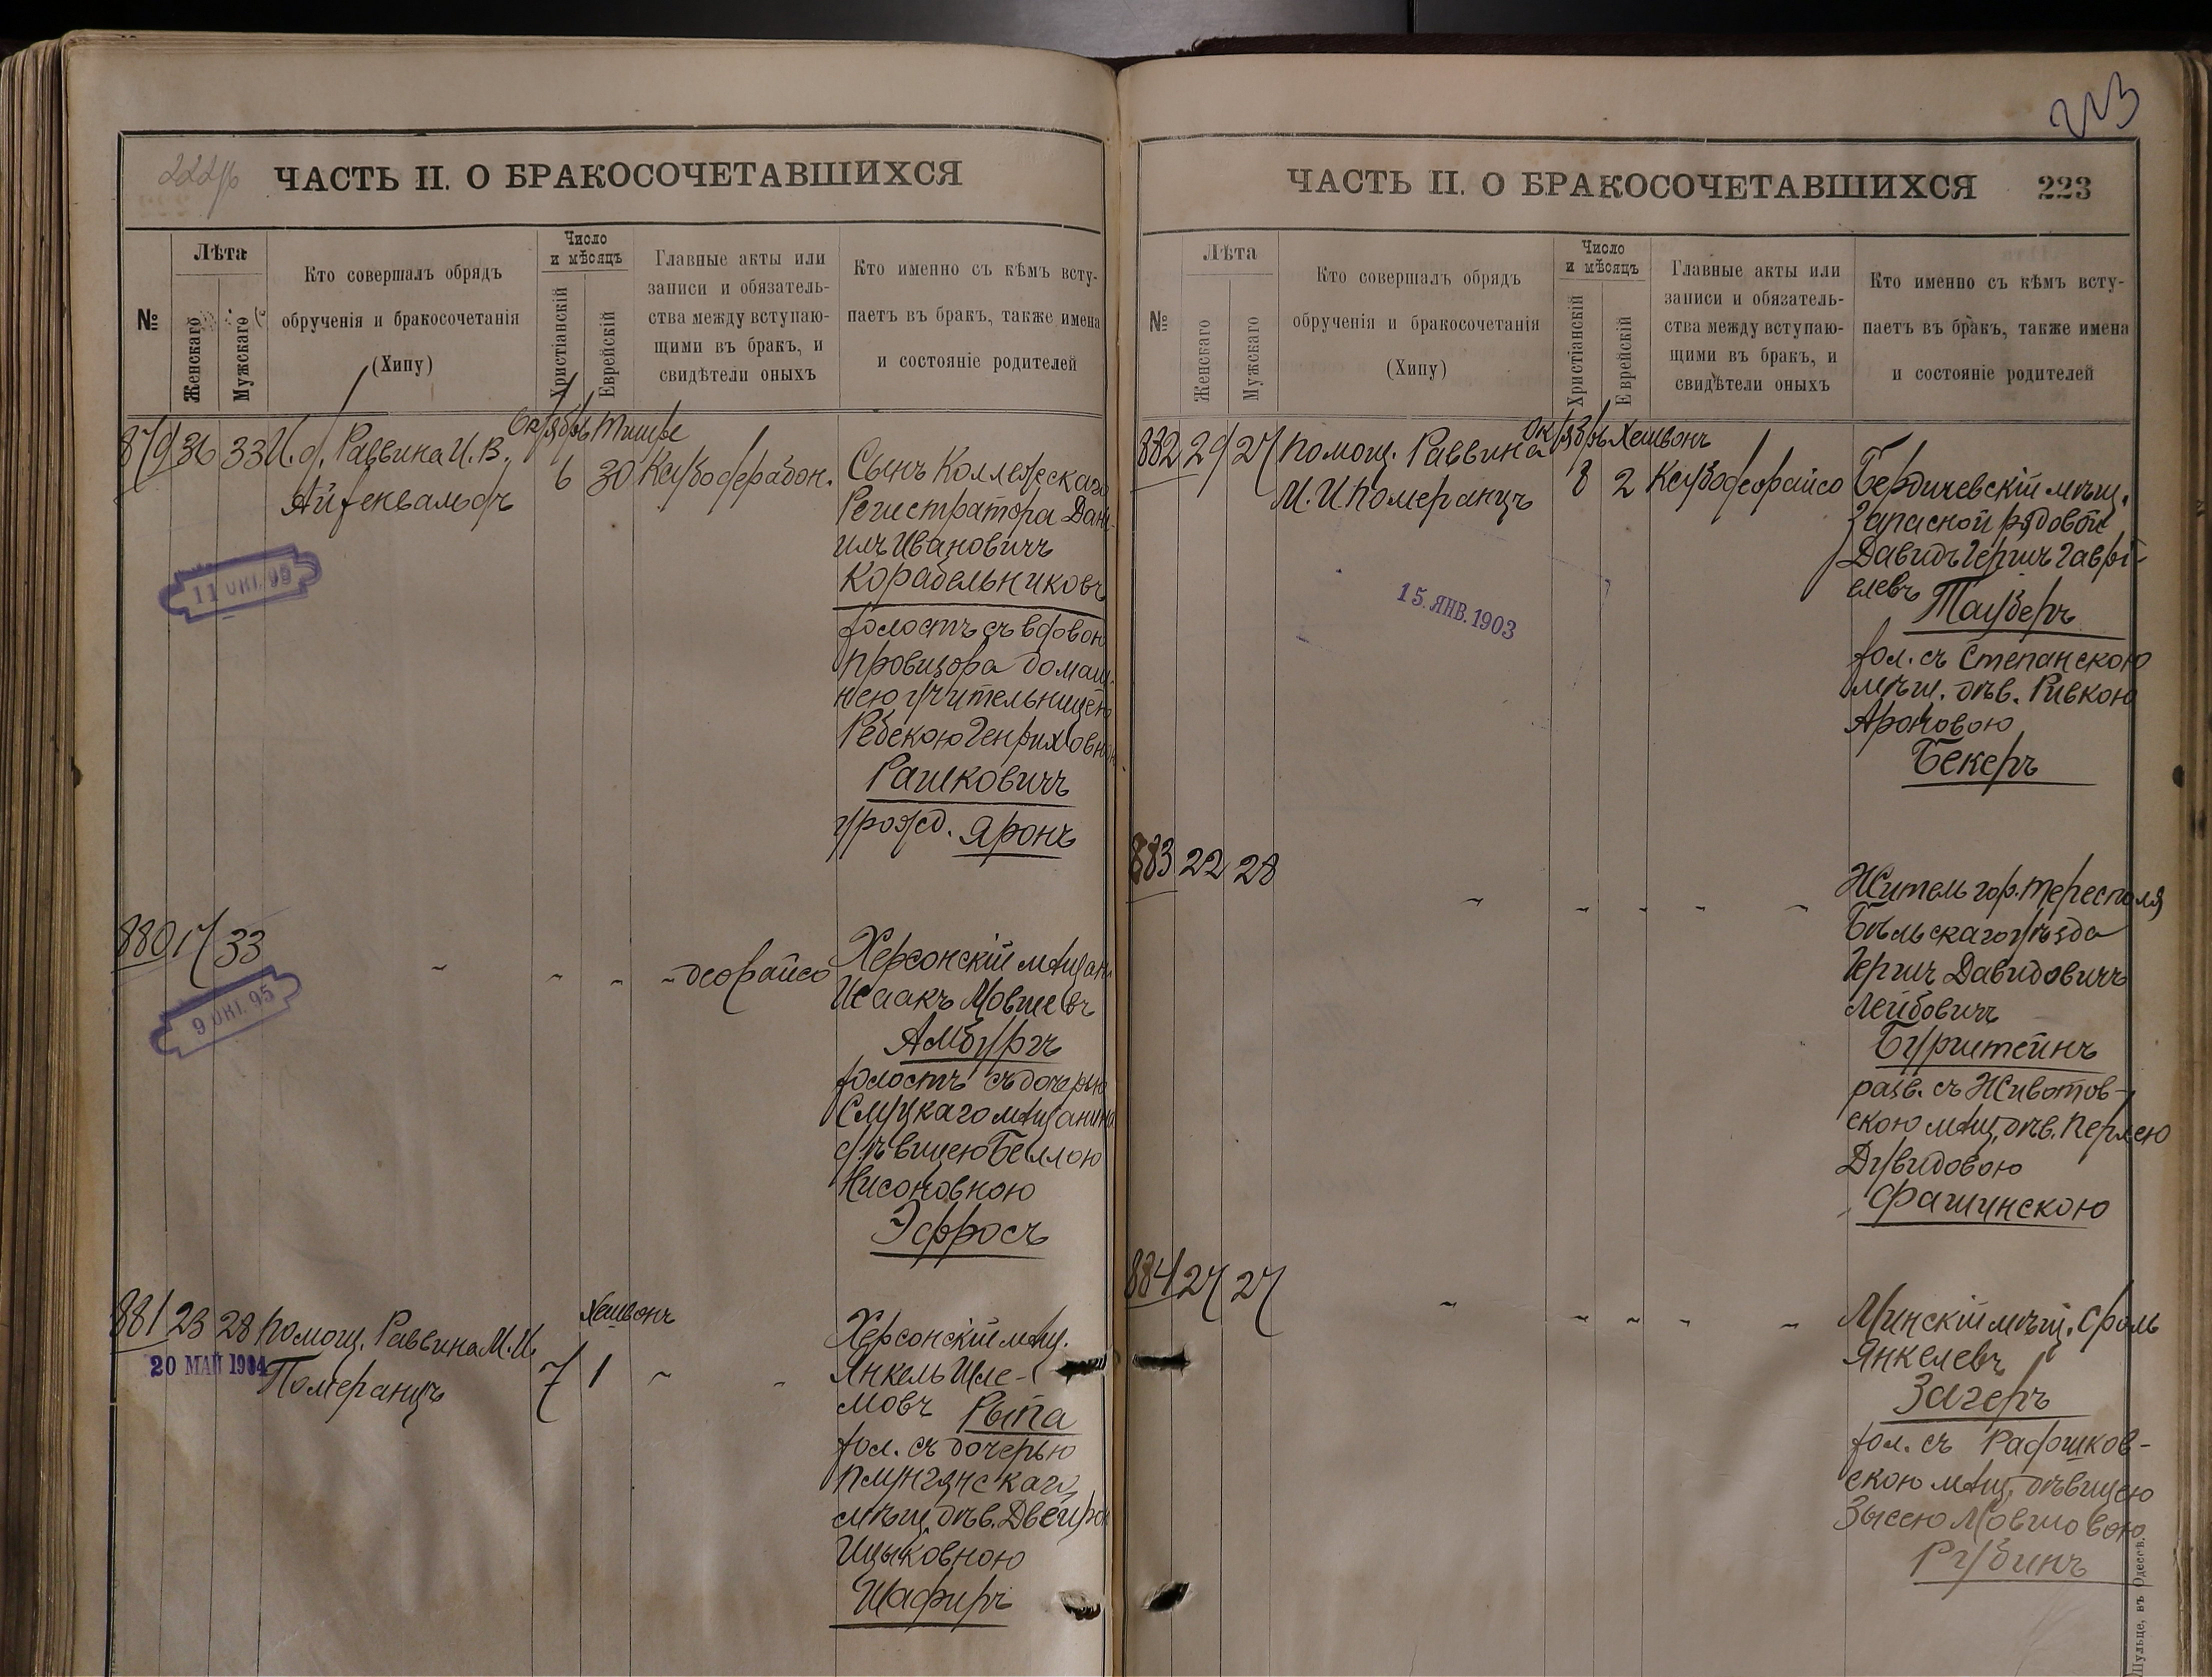 222/б
ЧАСТЬ II. О БРАКОСОЧЕТАВШИХСЯ
№
Лѣта
Женскаго
Мужскаго
Кто совершалъ обрядъ
обрученія и бракосочетанія
(Хипу)
Число
и мѣсяцъ
Христіанскій
Еврейскій
Главные акты или
записи и обязатель-
ства между вступаю-
щими въ бракъ, и
свидѣтели оныхъ
Кто именно съ кѣмъ всту-
паетъ въ бракъ, также имена
и состояніе родителей
Октябрь Тишре
879 36 33 И. д. Раввина И. В.
Айзенвальдъ
6 30
Сынъ Коллежскаго
Регистратора Дані-
илъ Ивановичъ
Корабельниковъ
холостъ съ вдовою
провизора домаш-
нею учительницею
Ребекою Генриховною
Рашковичъ
урожд. Яронъ
11 ОКТ. 95
880 17 33
" " " " деорайсо
Херсонскій мѣщан.
Исаакъ Мовшевъ
Амбургъ
холостъ съ дочерью
Слуцкаго мѣщанина
дѣвицею Беллою
Нисоновною
Эфросъ
9 ОКТ. 95
Хешвонъ
881 23 28 Помощ. Раввина М. И.
Померанцъ
7 1 " "
Херсонскій мѣщ.
Янкель Шле-
мовъ Рыпа
хол. съ дочерью
Плунгянскаго
мѣщ. дѣв. Двейрою
Ицыковною
Шафиръ
20 МАЙ 1904
223
ЧАСТЬ II. О БРАКОСОЧЕТАВШИХСЯ 223
№
Лѣта
Женскаго
Мужскаго
Кто совершалъ обрядъ
обрученія и бракосочетанія
(Хипу)
Число
и мѣсяцъ
Христіанскій
Еврейскій
Главные акты или
записи и обязатель-
ства между вступаю-
щими въ бракъ, и
свидѣтели оныхъ
Кто именно съ кѣмъ всту-
паетъ въ бракъ, также имена
и состояніе родителей
Октябрь Хешвонъ
882 29 27 Помощ. Раввина
М. И. Померанцъ
8 2 Ксубо деорайсо
Бердичевскій мѣщ.
запасной рядовой
Давидъ Гершъ Гаврі-
елевъ Тауберъ
хол. съ Степанскою
мѣщ. дѣв. Ривкою
Ароновою
Бекеръ
15. ЯНВ. 1903
883 22 28
" " " " "
Житель гор. Тересполя
Бѣльскаго уѣзда
Гершъ Давидовичъ
Лейбовичъ
Бурштейнъ
разв. съ Животов-
скою мѣщ. дѣв. Перлею
Дувидовою
Фашинскою
884 27 27
" " " " "
Минскій мѣщ. Сроль
Янкелевъ
Загеръ
хол. съ Радошков-
скою мѣщ. дѣвицею
Зысею Мовшовою
Рубинъ
Шульце, въ Одессѣ.